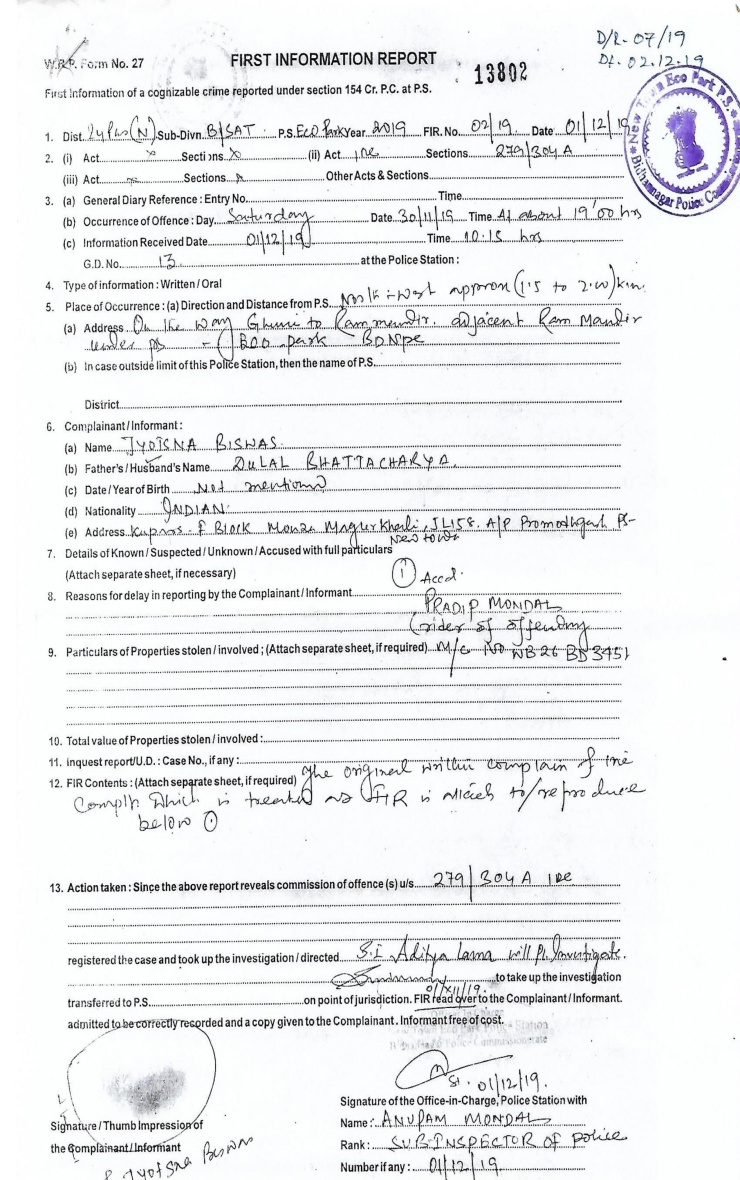 D/R- 07/19
Dt. 02.12.19
W.B.P. Form No. 27
FIRST INFORMATION REPORT
13802
First Information of a cognizable crime reported under section 154 Cr. P.C. at P.S.
New Town Eco Park P.S.
Bidhannagar Police Commissionerate
1. Dist. 24 Pgs (N) Sub-Divn. B/SAT P.S. Eco Park Year 2019 FIR. No. 02/19 Date 01/12/19
2. (i) Act x Sections x (ii) Act IPC Sections 279/304 A
(iii) Act x Sections x Other Acts & Sections
3. (a) General Diary Reference : Entry No. Time
(b) Occurrence of Offence : Day Saturday Date 30/11/19 Time At about 19:00 hrs
(c) Information Received Date 01/12/19 Time 10.15 hrs
G.D. No. 13 at the Police Station :
4. Type of information : Written / Oral
5. Place of Occurrence : (a) Direction and Distance from P.S. North-West approx (1.5 to 2.00) k.m.
(a) Address On the way Ghuni to Ram mandir. adjacent Ram Mandir
under ps - Eco park BDNPC
(b) In case outside limit of this Police Station, then the name of P.S.
District
6. Complainant / Informant :
(a) Name JYOTSNA BISWAS
(b) Father's / Husband's Name DULAL BHATTACHARYA
(c) Date / Year of Birth Not mentioned
(d) Nationality INDIAN
(e) Address F Block Mouza Magurkhali, JL158. A/P Promodhgarh PS-
New town
7. Details of Known / Suspected / Unknown / Accused with full particulars
(Attach separate sheet, if necessary)
① Accd.
8. Reasons for delay in reporting by the Complainant / Informant
PRADIP MONDAL
(rider of offending
9. Particulars of Properties stolen / involved ; (Attach separate sheet, if required) M/C No WB26 BD 3451
10. Total value of Properties stolen / involved :
11. Inquest report / U.D. : Case No., if any :
12. FIR Contents : (Attach separate sheet, if required) The original written complain of the
Complt which is treated as FIR is attach to/reproduce
below
13. Action taken : Since the above report reveals commission of offence (s) u/s 279/304 A IPC
registered the case and took up the investigation / directed S.I Aditya Lama will Pl. Investigate.
to take up the investigation
01/XII/19.
transferred to P.S. on point of jurisdiction. FIR read over to the Complainant / Informant.
admitted to be correctly recorded and a copy given to the Complainant. Informant free of cost.
Officer In Charge
New Town Eco Park Police Station
Bidhannagar Police Commissionerate
SI. 01/12/19.
Signature of the Office-in-Charge, Police Station with
Signature / Thumb Impression of
the Complainant / Informant
Jyotsna Biswas
Name : ANUPAM MONDAL
Rank : SUB-INSPECTOR OF Police
Number if any : 01/12/19